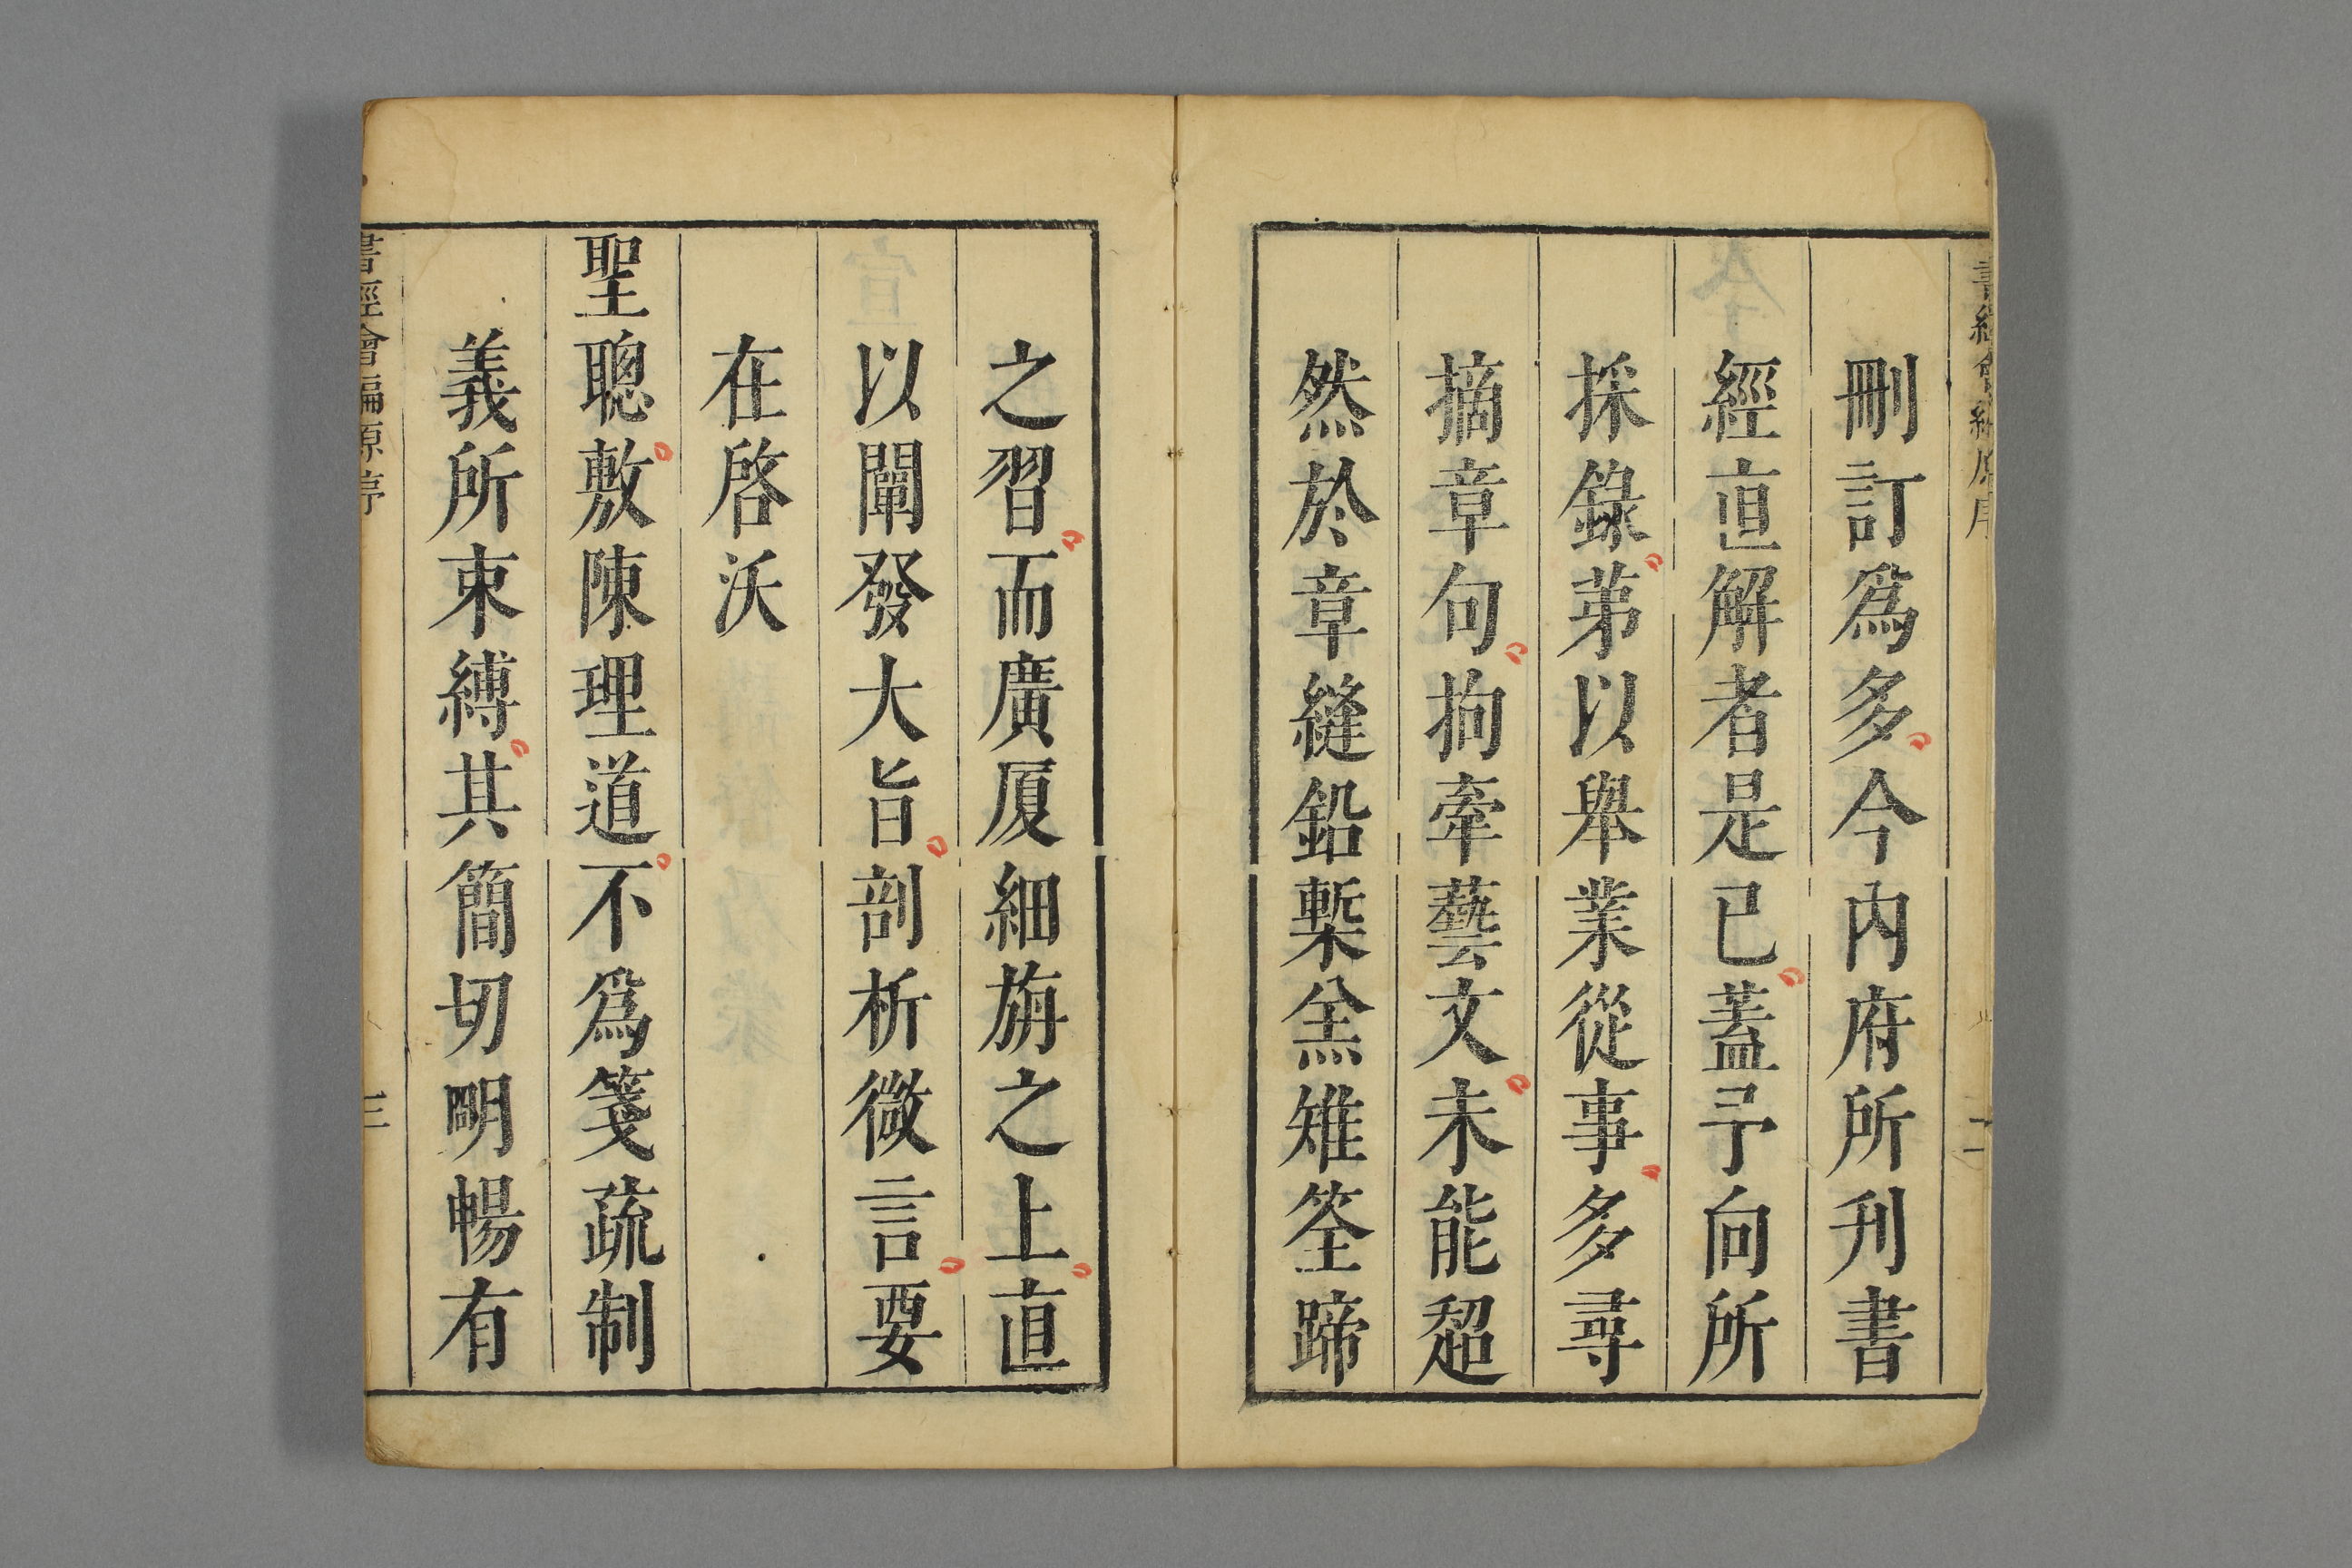 刪訂爲多今內府所刋書
經直解者是已蓋予向所
採錄苐以舉業從事多尋
摘章句拘牽藝文未能超
然於章縫鉛槧羔雉筌蹄
之習而廣厦細旃之上直
以闡發大旨剖析微言要
在啓沃
聖聰敷陳理道不爲箋疏制
義所束縛其簡切明暢有
書經會編原序
三